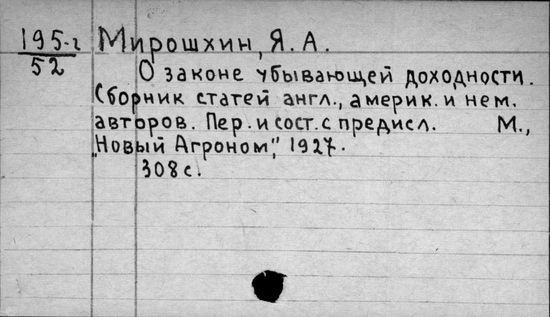 195-г
52
Мирошхин, Я. А.
О законе убывающей доходности.
Сборник статей англ., америк. и нем.
авторов. Пер. и сост. с предисл. М.,
„Новый Агроном", 1927.
308 с.